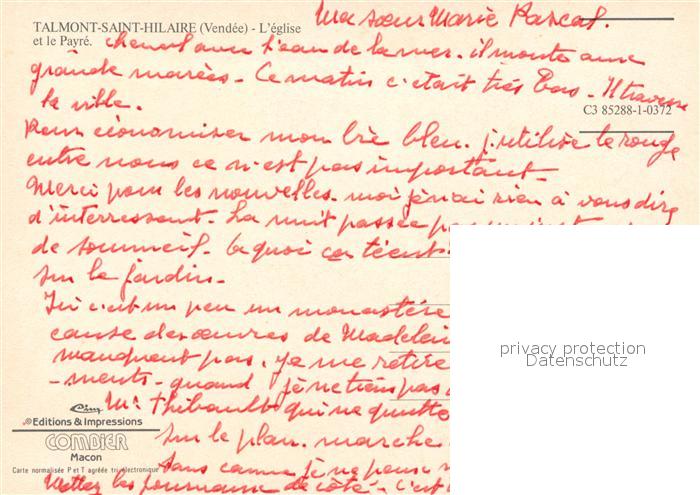 TALMONT-SAINT-HILAIRE (Vendée) - L'église
et le Payré.
Ma sœur Marie Pascal.
chenal avec l'eau de la mer. il monte aux
grande marées - Ce matin c'était très bas - Il traverse
la ville.
C3 85288-1-0372
Pour économiser mon bic bleu. j'utilise le rouge
entre nous ce n'est pas important -
Merci pour les nouvelles. moi je n'ai rien à vous dire
d'interressent. La nuit passée pas
de sommeil.
sur le jardin -
Ici c'est un peu un monastère
cause des œuvres de Madelei
manquent pas. je me retire
-ments - quand je ne tiens pas
privacy protection
Datenschutz
Mr Thibault qui ne quitte
sur le plan. marche
Sans canne je ne peux
Mettez les journaux de côté - c'est
Cim
Editions & Impressions
COMBIER
Macon
Carte normalisée P et T agréée tri électronique